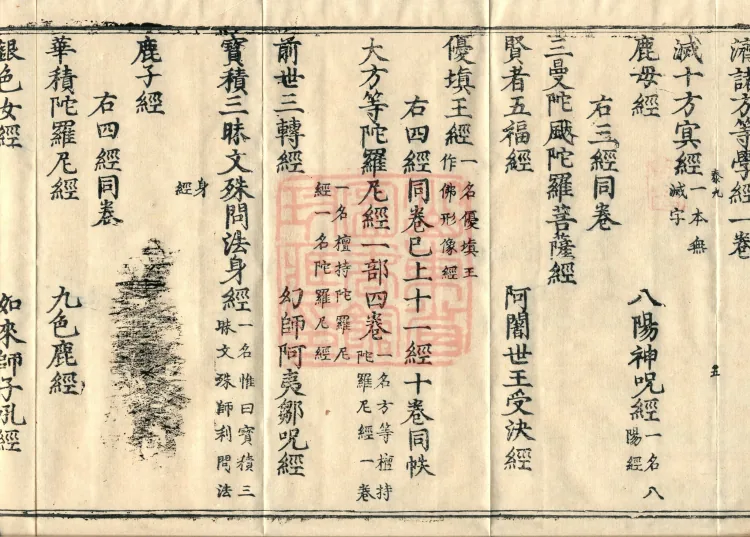 濟諸方等學經一卷
滅十方冥經一本無
滅字
鹿母經 八陽神呪經一名八
陽經
右三經同卷
三曼陀颰陀羅菩薩經
賢者五福經 阿闍世王受決經
優填王經一名優填王
作佛形像經
右四經同卷已上十一經十卷同帙
大方等陀羅尼經一部四卷一名方等檀持
陀羅尼經一卷
一名檀持陀羅尼
經一名陀羅尼經
前世三轉經 幻師阿夷鄒呪經
寶積三昧文殊問法身經一名惟曰寶積三
昧文殊師利問法
身
經
鹿子經
右四經同卷
華積陀羅尼經 九色鹿經
銀色女經 如來師子吼經